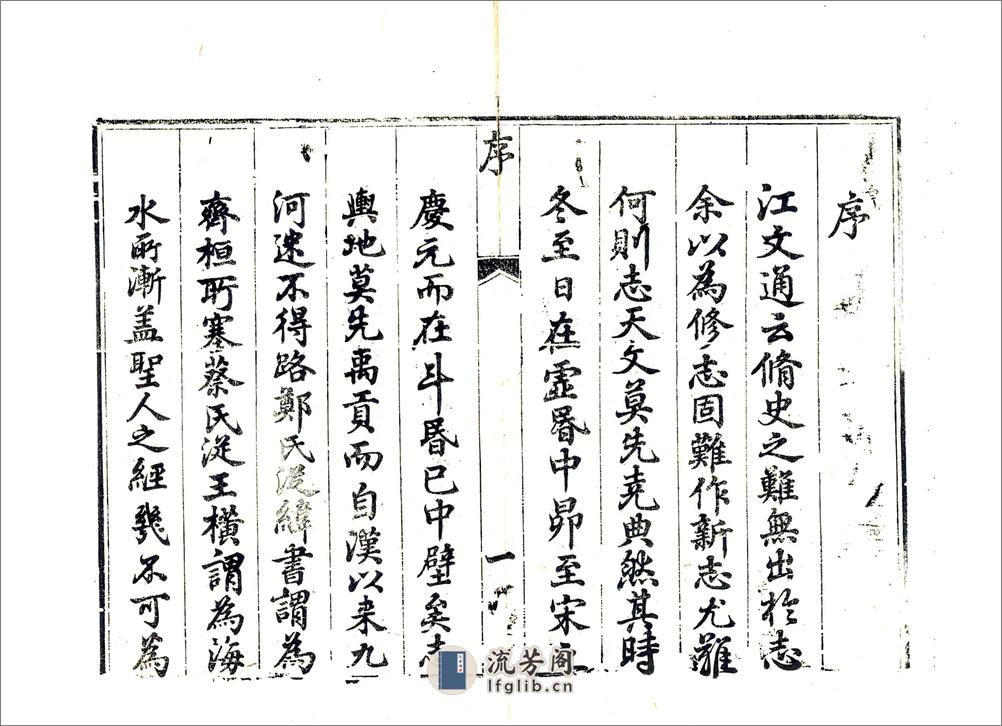 序
江文通云脩史之難無出於志
余以為修志固難作新志尤難
何則志天文莫先堯典然其時
冬至日在虛昬中昴至宋之
慶元而在斗昬已中壁矣志
輿地莫先禹貢而自漢以来九
河迷不得路鄭氏從緯書謂為
齊桓所塞蔡氏從王橫謂為海
水所漸盖聖人之經幾不可為
序
一
流芳阁
lfglib.cn